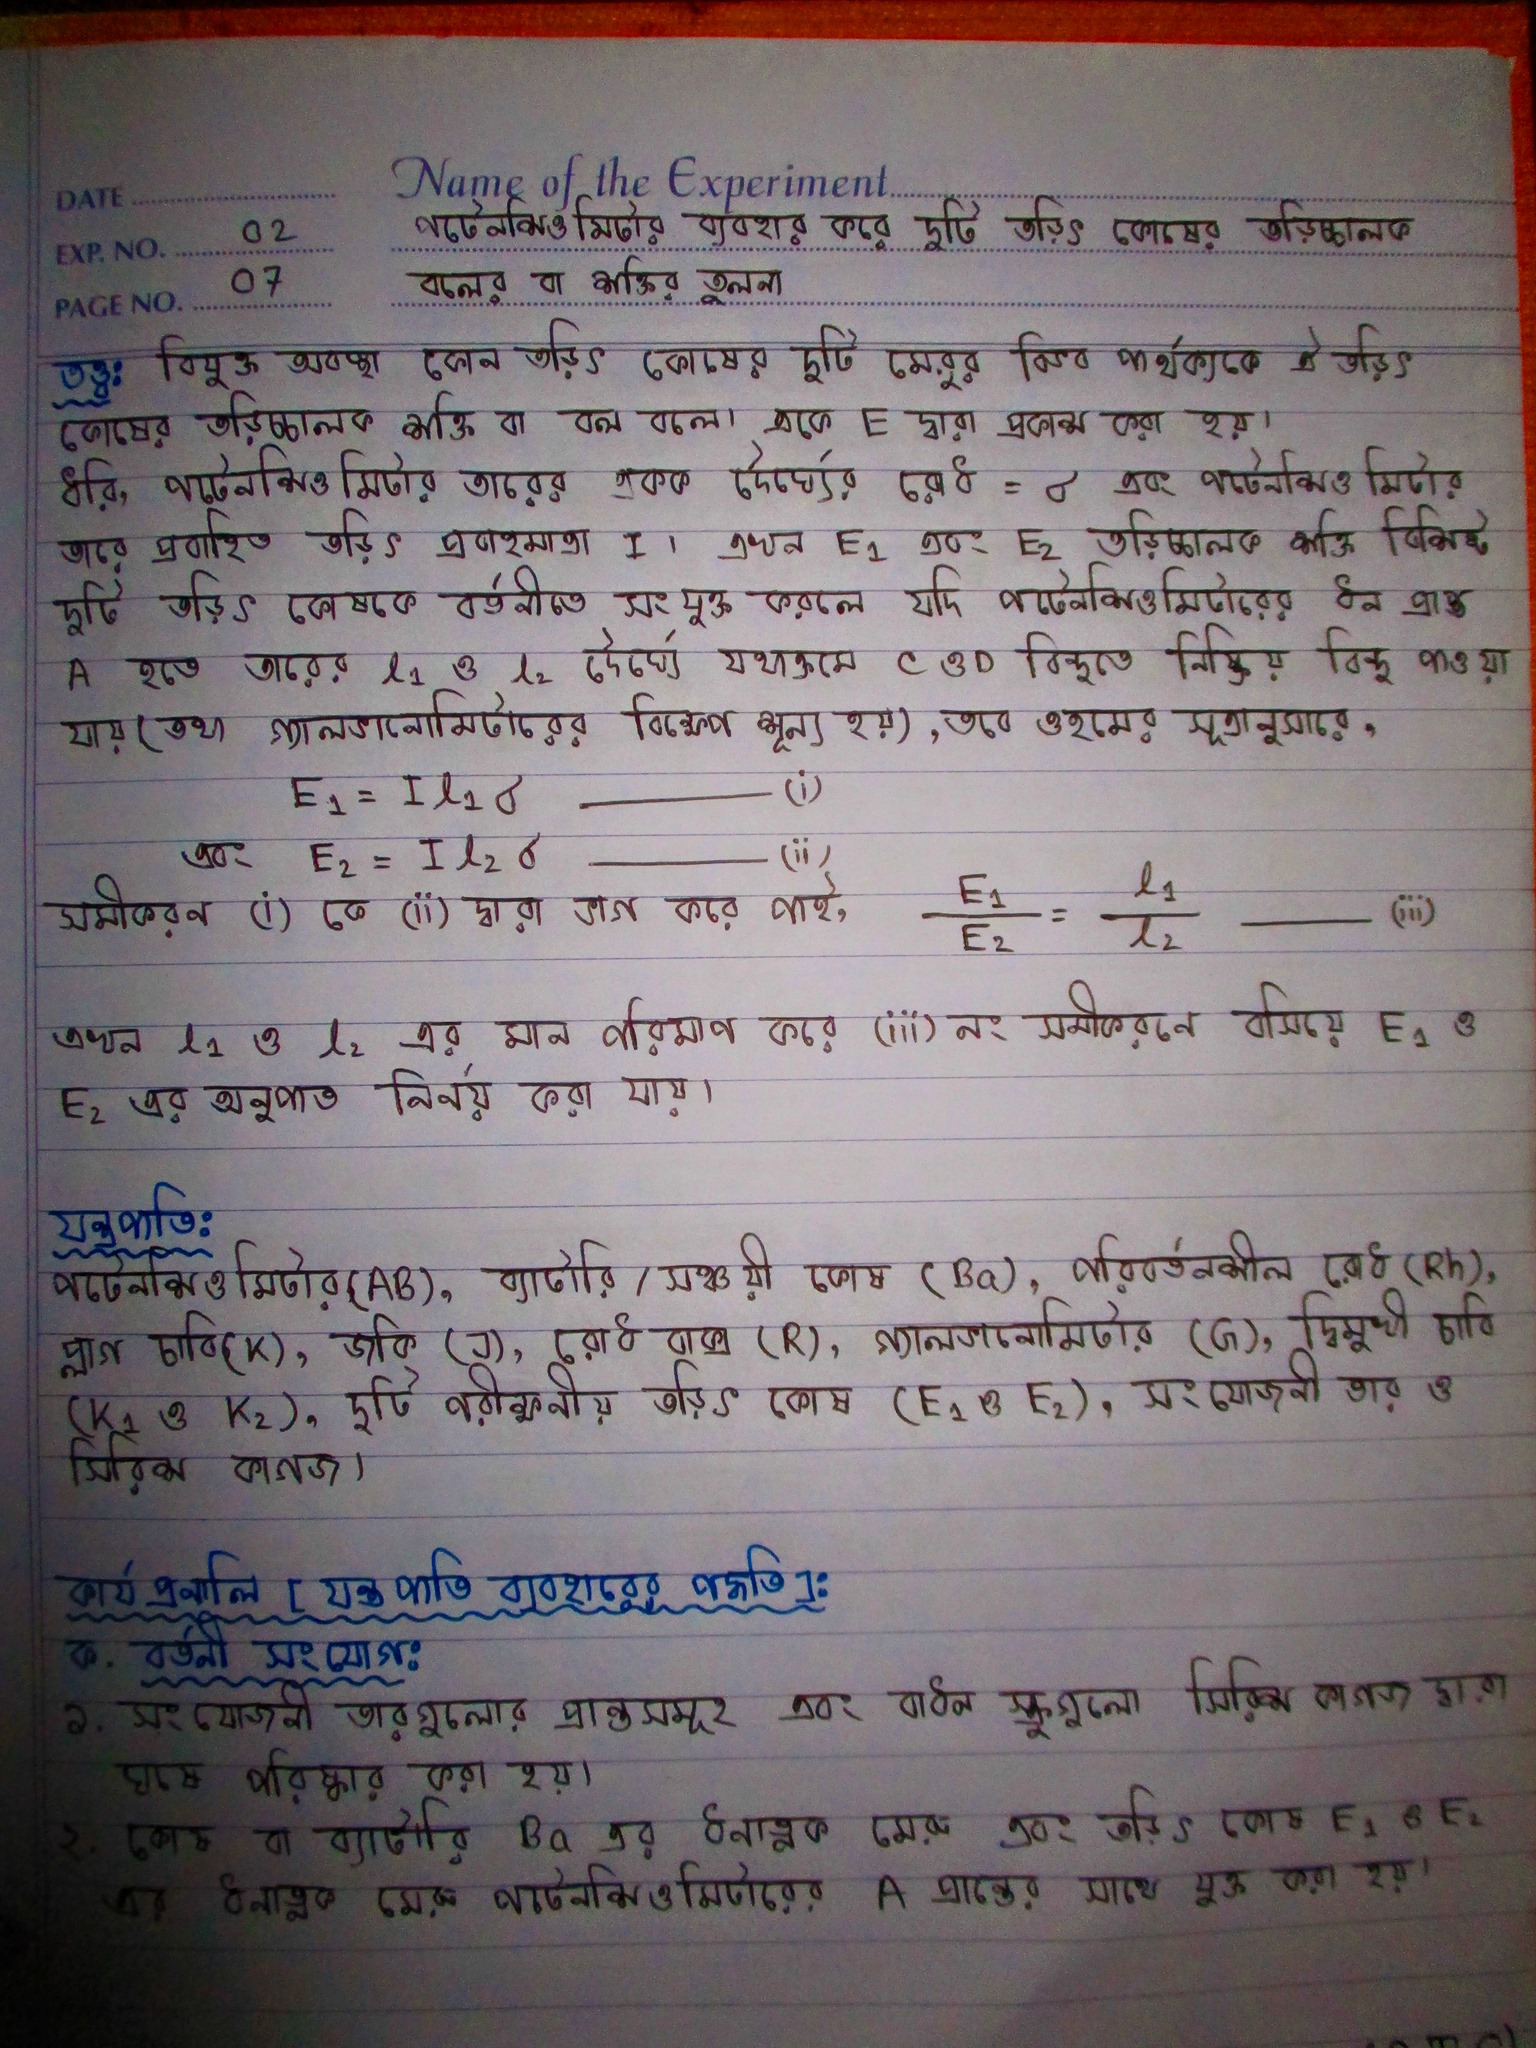 Name of the Experiment
DATE
EXP. NO. 02 পটেনশিওমিটার ব্যবহার করে দুটি তড়িৎ কোষের তড়িচ্চালক
PAGE NO. 07 বলের বা শক্তির তুলনা
তত্ত্ব: বিযুক্ত অবস্থা কোন তড়িৎ কোষের দুটি মেরুর বিভব পার্থক্যকে ঐ তড়িৎ
কোষের তড়িচ্চালক শক্তি বা বল বলে। একে E দ্বারা প্রকাশ করা হয়।
ধরি, পটেনশিওমিটার তারের একক দৈর্ঘ্যের রোধ = σ এবং পটেনশিওমিটার
তারে প্রবাহিত তড়িৎ প্রবাহমাত্রা I। এখন E₁ এবং E₂ তড়িচ্চালক শক্তি বিশিষ্ট
দুটি তড়িৎ কোষকে বর্তনীতে সংযুক্ত করলে যদি পটেনশিওমিটারের ধন প্রান্ত
A হতে তারের l₁ ও l₂ দৈর্ঘ্যে যথাক্রমে C ও D বিন্দুতে নিষ্ক্রিয় বিন্দু পাওয়া
যায় (তথা গ্যালভানোমিটারের বিক্ষেপ শূন্য হয়), তবে ওহমের সূত্রানুসারে,
E₁ = I l₁ σ ——— (i)
এবং E₂ = I l₂ σ ——— (ii)
সমীকরন (i) কে (ii) দ্বারা ভাগ করে পাই, E₁/E₂ = l₁/l₂ ——— (iii)
এখন l₁ ও l₂ এর মান পরিমাপ করে (iii) নং সমীকরনে বসিয়ে E₁ ও
E₂ এর অনুপাত নির্নয় করা যায়।
যন্ত্রপাতি:
পটেনশিওমিটার(AB), ব্যাটারি / সঞ্চয়ী কোষ (Ba), পরিবর্তনশীল রোধ (Rh),
প্লাগ চাবি(K), জকি (J), রোধ বাক্স (R), গ্যালভানোমিটার (G), দ্বিমুখী চাবি
(K₁ ও K₂), দুটি পরীক্ষনীয় তড়িৎ কোষ (E₁ ও E₂), সংযোজনী তার ও
সিরিশ কাগজ।
কার্য প্রনালি [ যন্ত্রপাতি ব্যবহারের পদ্ধতি ]:
ক. বর্তনী সংযোগ:
১. সংযোজনী তারগুলোর প্রান্তসমূহ এবং বাধন স্ক্রুগুলো সিরিশ কাগজ দ্বারা
ঘষে পরিষ্কার করা হয়।
২. কোষ বা ব্যাটারি Ba এর ধনাত্নক মেরু এবং তড়িৎ কোষ E₁ ও E₂
এর ধনাত্নক মেরু পটেনশিওমিটারের A প্রান্তের সাথে যুক্ত করা হয়।